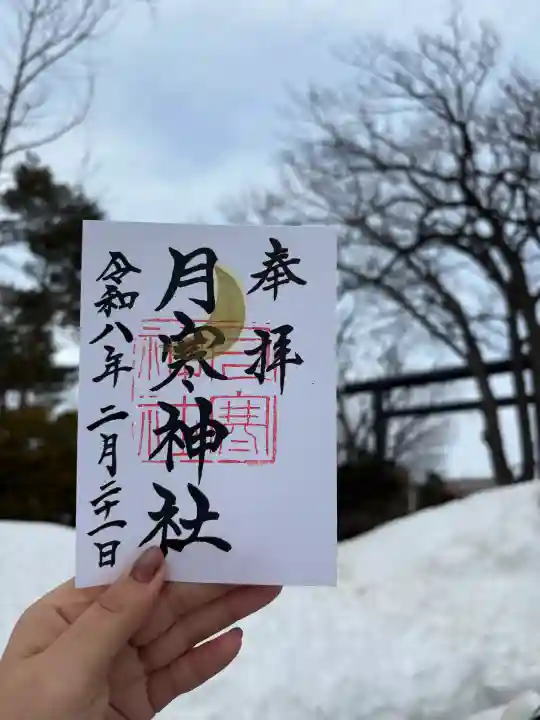 奉拝
月寒神社
令和八年二月二十一日
月寒神社